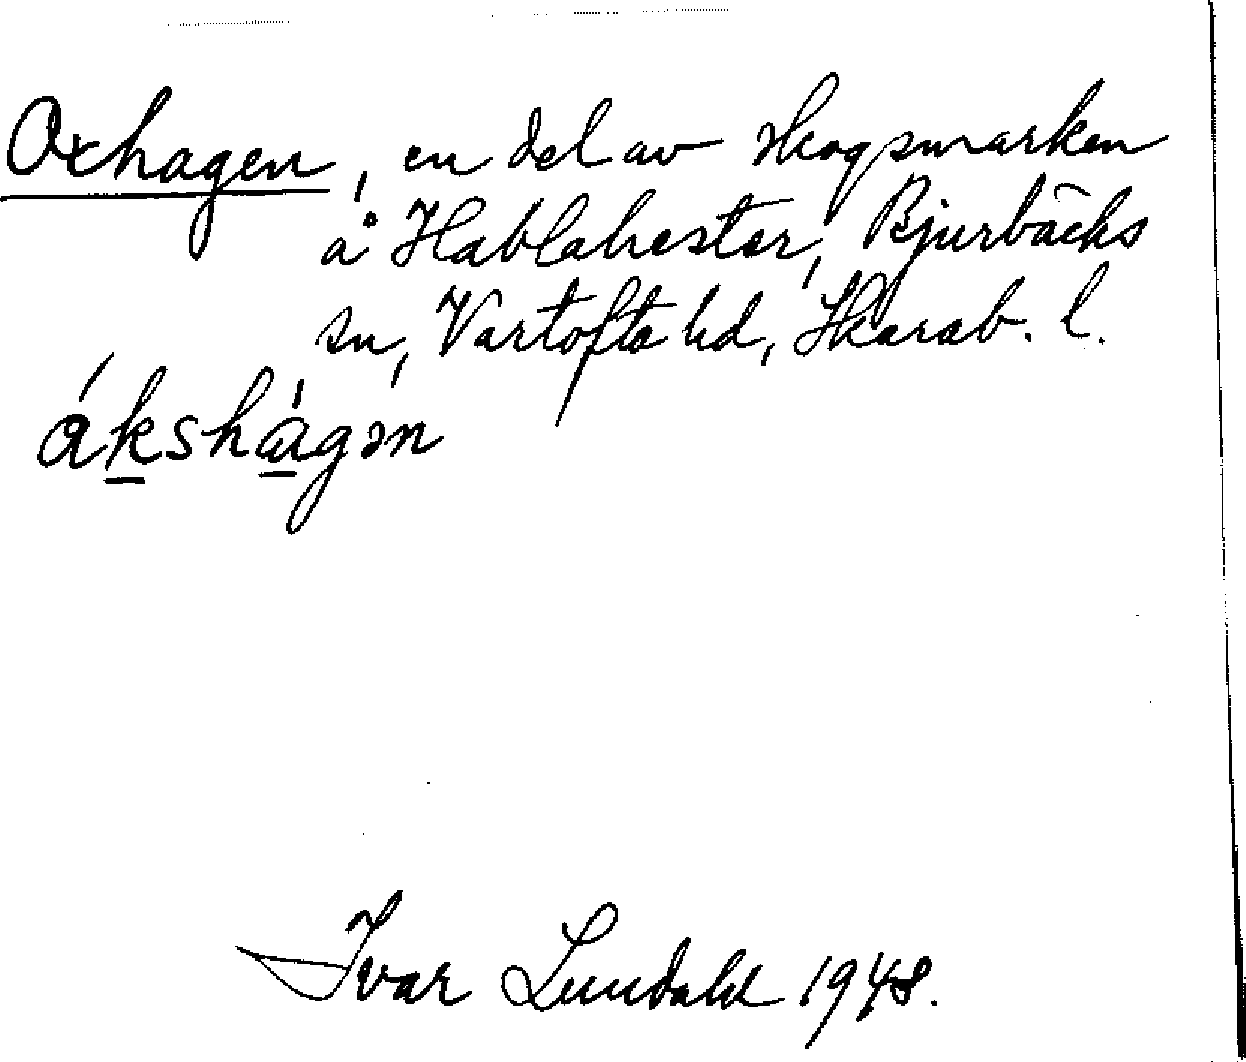 Oxhagen, en del av skogsmarken
å Habblahester, Bjurbäcks
sn, Vartofta hd, Skarab. l.
ákshàgən
Ivar Lundahl 1948.